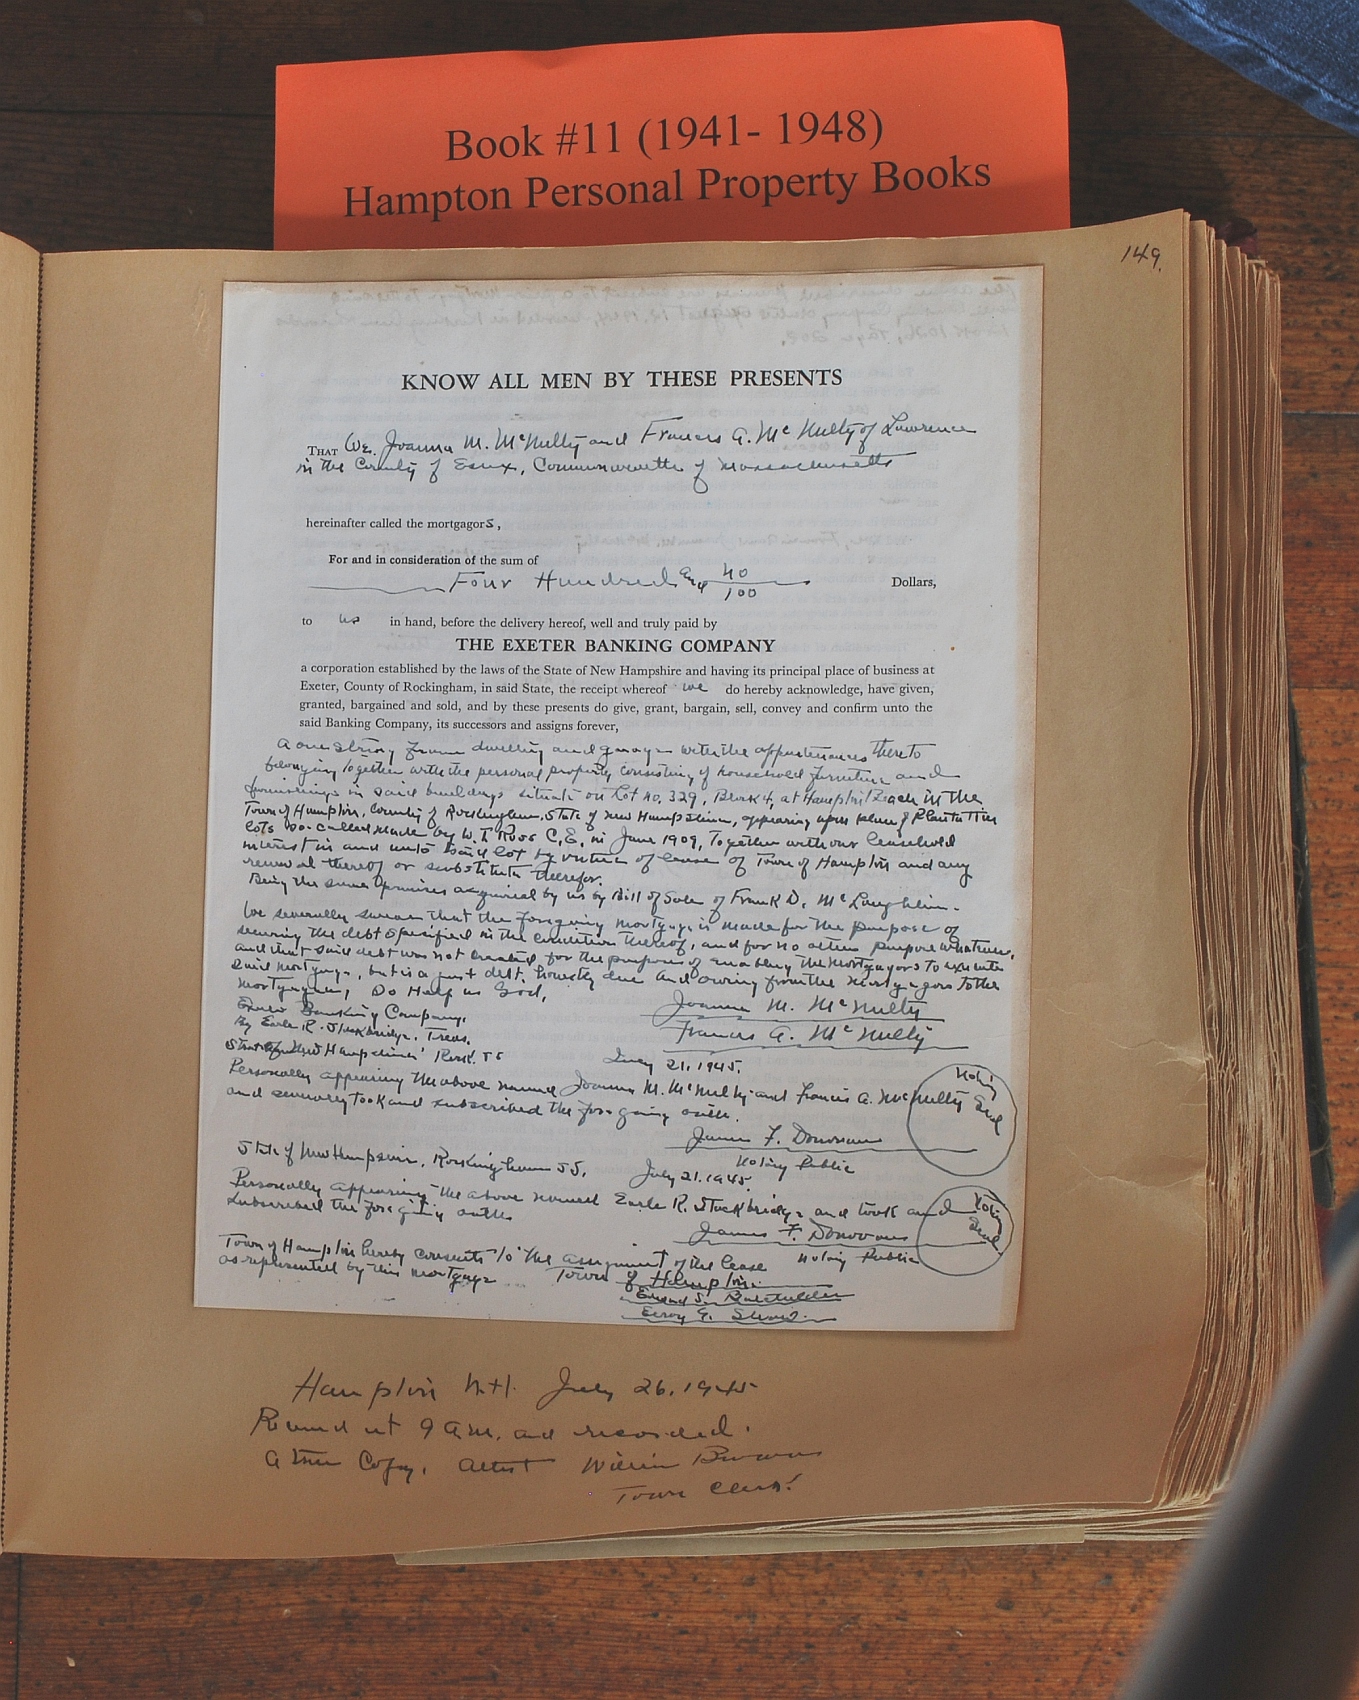 Book #11 (1941- 1948)
Hampton Personal Property Books
149.
KNOW ALL MEN BY THESE PRESENTS
THAT We, Joanna M. McNulty and Francis A. McNulty of Lawrence
in the County of Essex, Commonwealth of Massachusetts
hereinafter called the mortgagors,
For and in consideration of the sum of
Four Hundred and 40/100 Dollars,
to us in hand, before the delivery hereof, well and truly paid by
THE EXETER BANKING COMPANY
a corporation established by the laws of the State of New Hampshire and having its principal place of business at
Exeter, County of Rockingham, in said State, the receipt whereof we do hereby acknowledge, have given,
granted, bargained and sold, and by these presents do give, grant, bargain, sell, convey and confirm unto the
said Banking Company, its successors and assigns forever,
A one story frame dwelling and garage with the appurtenances thereto
belonging together with the personal property consisting of household furniture and
furnishings in said buildings situate on Lot No. 329, Block 4, at Hampton Beach in the
Town of Hampton, County of Rockingham, State of New Hampshire, appearing upon plan of
lots so-called made by W. T. Ross C.E. in June 1909, Together with our leasehold
interest in and unto said lot by virtue of lease of Town of Hampton and any
renewal thereof or substitute therefor.
Being the same premises acquired by us by Bill of Sale of Frank D. McLaughlin.
We severally swear that the foregoing mortgage is made for the purpose of
securing the debt specified in the condition thereof, and for no other purpose whatever,
and that said debt was not created for the purpose of enabling the mortgagors to execute
said mortgage, but is a just debt, honestly due and owing from the mortgagors to the
mortgagee, So Help us God,
Joanna M. McNulty
Exeter Banking Company,
Francis A. McNulty
By Earle R. Stockbridge, Treas.
State of New Hampshire Rock. SS July 21, 1945.
Personally appearing the above named Joanna M. McNulty and Francis A. McNulty
and severally took and subscribed the foregoing oath.
Notary Seal
James F. Donovan
Notary Public
State of New Hampshire, Rockingham SS, July 21, 1945.
Personally appearing the above named Earle R. Stockbridge and took and
subscribed the foregoing oath
Notary Seal
James F. Donovan
Notary Public
Town of Hampton hereby consents to the assignment of the lease
as represented by this mortgage Town of Hampton.
Batchelder
Elroy G. Shaw.
Hampton N.H. July 26, 1945
Received at 9 A.M. and recorded.
A true Copy, Attest William Brown
Town Clerk.